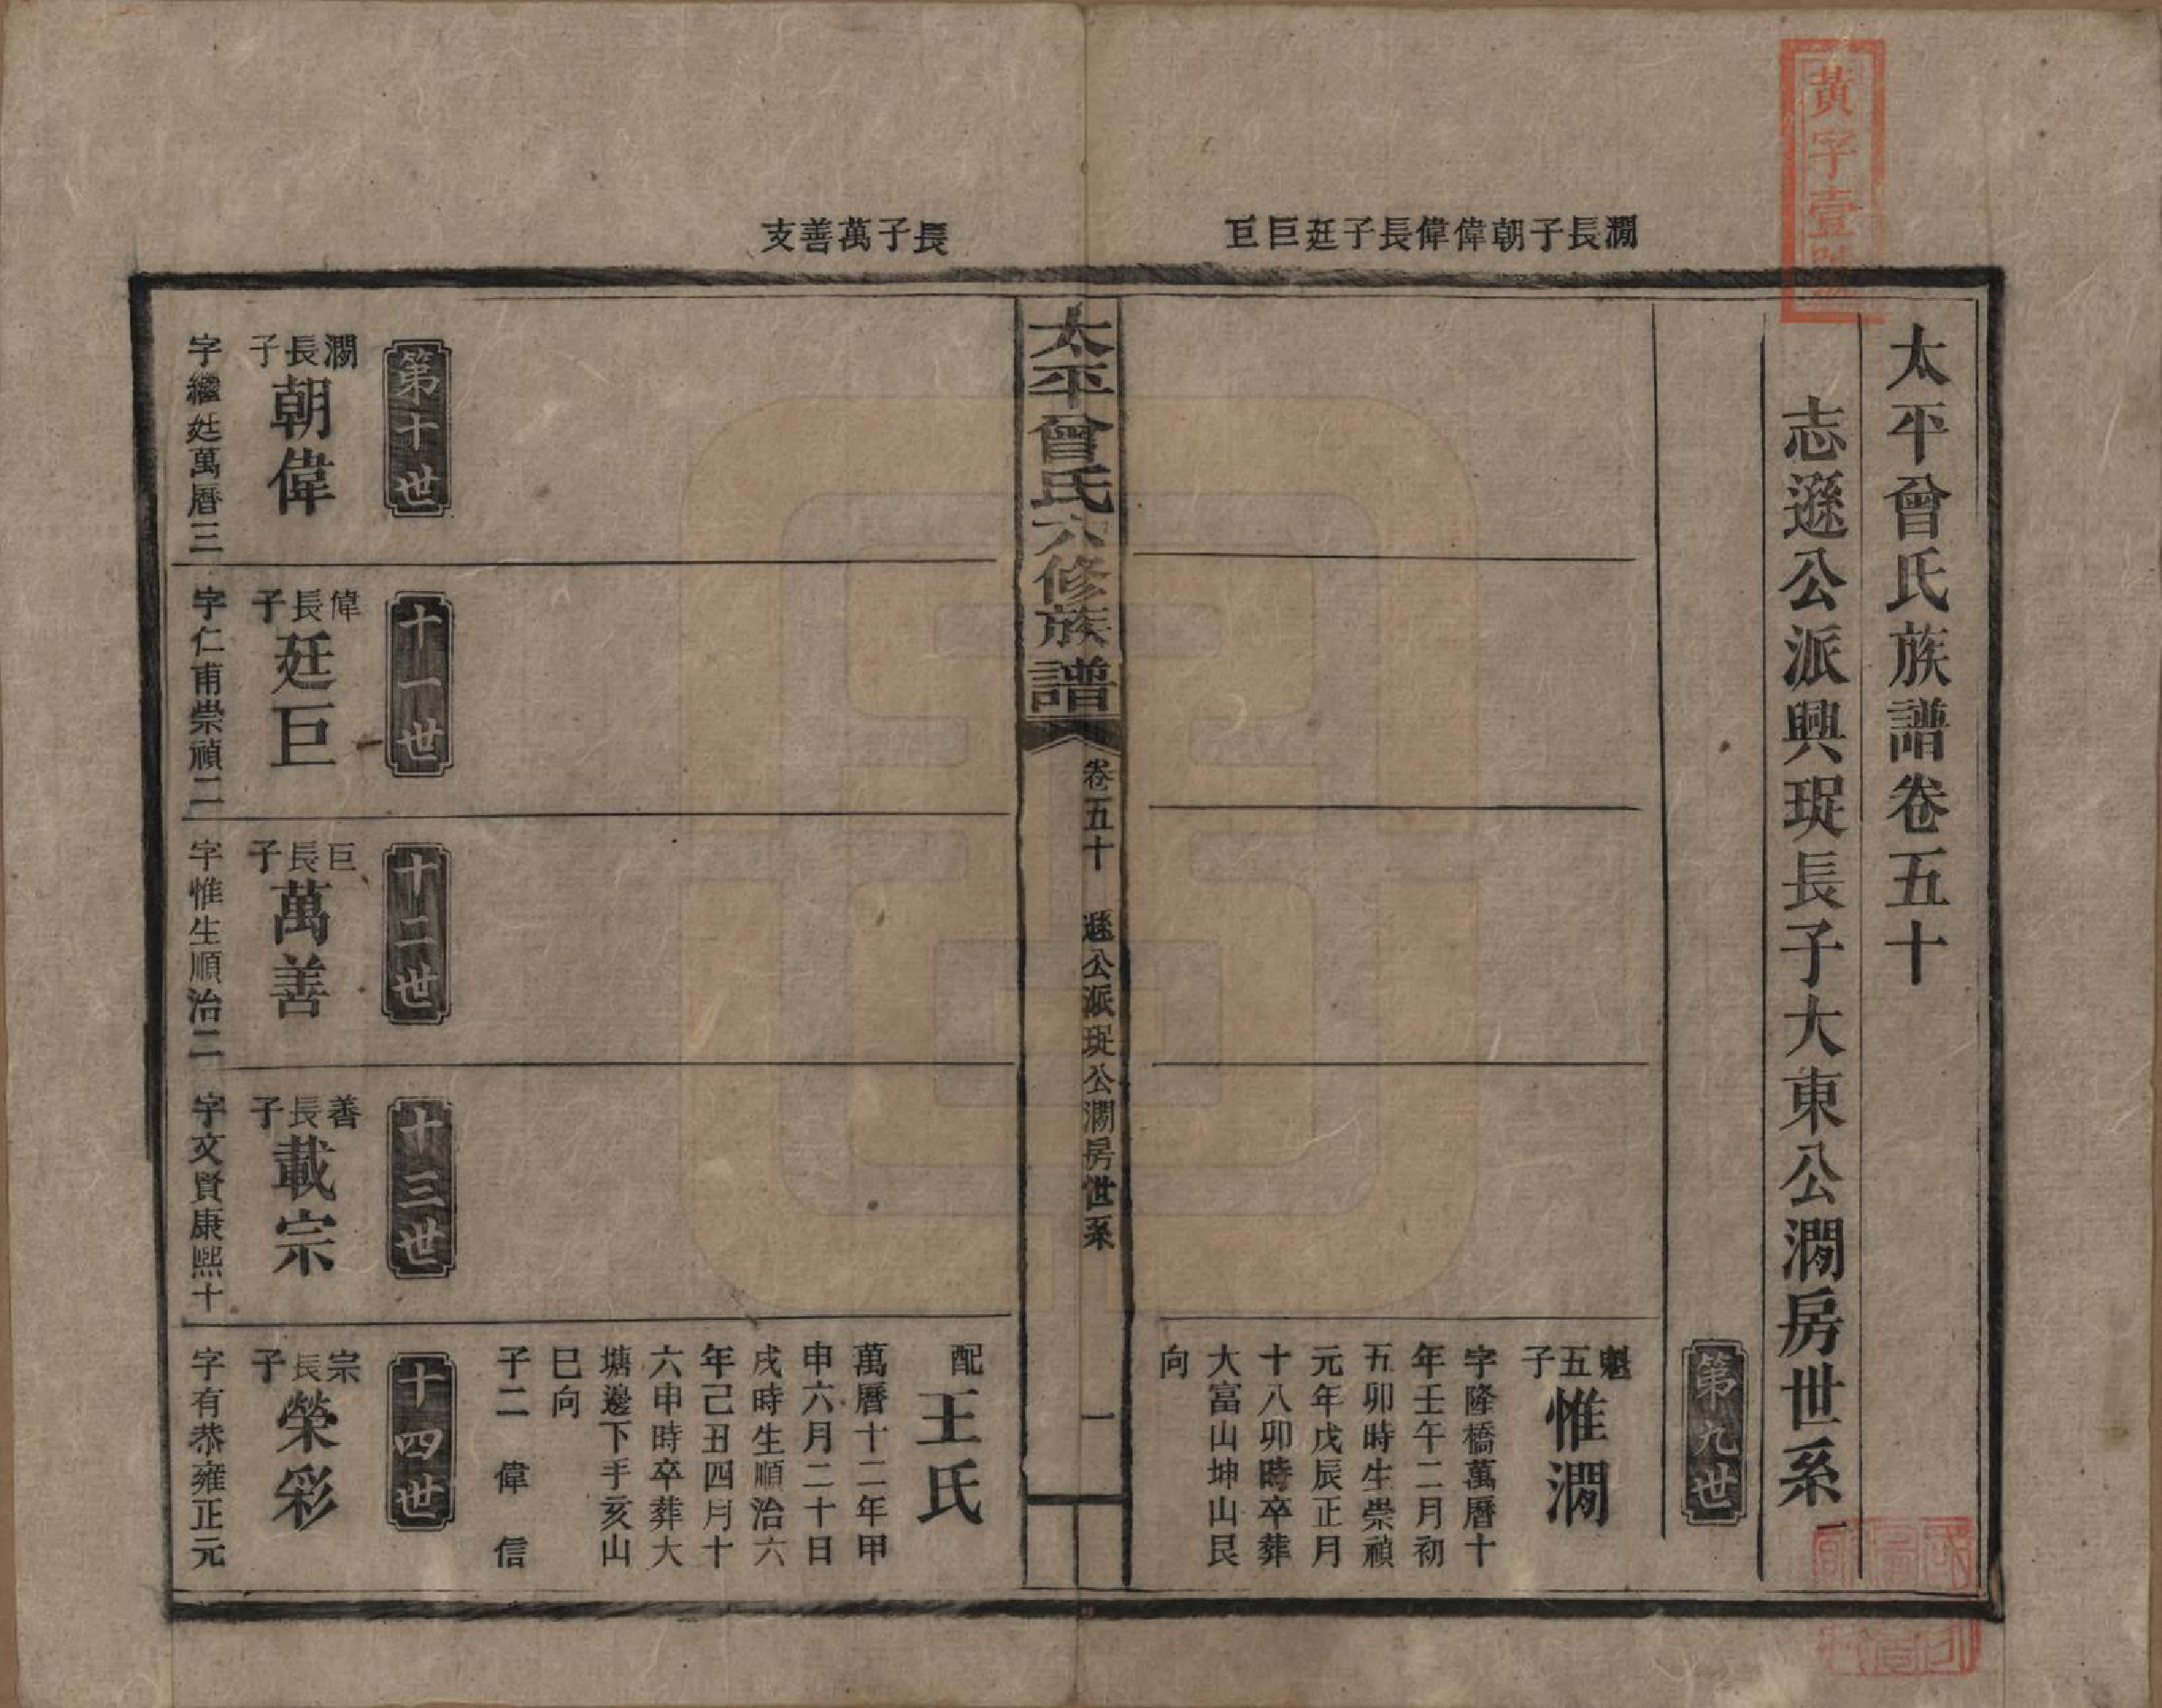 黃字壹號
澗長子朝偉偉長子廷巨巨
長子萬善支
太平曾氏族譜卷五十
志遜公派興珽長子大東公澗房世系一
第九世
魁五子
惟澗
字隆橋萬曆十
年壬午二月初
五卯時生崇禎
元年戊辰正月
十八卯時卒葬
大富山坤山艮
向
太平曾氏六修族譜
卷五十
遜公派珽公澗房世系
一
配
王氏
萬曆十二年甲
申六月二十日
戌時生順治六
年己丑四月十
六申時卒葬大
塘邊下手亥山
巳向
子二 偉 信
第十世
澗長子
朝偉
字繼姓萬曆三
十一世
偉長子
廷巨
字仁甫崇禎二
十二世
巨長子
萬善
字惟生順治二
十三世
善長子
載宗
字文賢康熙十
十四世
宗長子
榮彩
字有恭雍正元